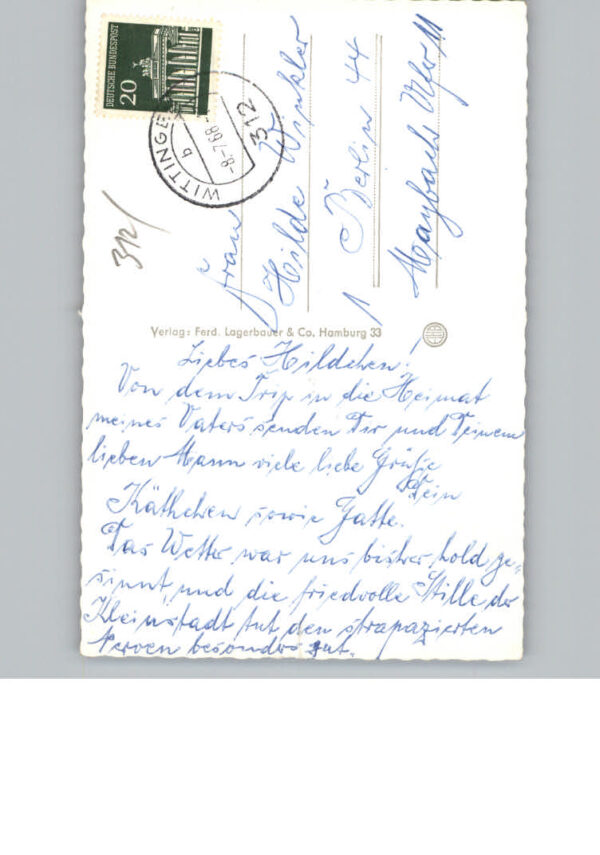 DEUTSCHE BUNDESPOST
20
WITTINGE
b
-8-7.68-
312
312/
Frau
Hilde Winkler
1 Berlin 44
Maybach Ufer 11
Verlag: Ferd. Lagerbauer & Co. Hamburg 33
Liebes Hildchen!
Von dem Trip in die Heimat
meines Vaters senden Dir und Deinem
lieben Mann viele liebe Grüße
Dein
Käthchen sowie Gatte.
Das Wetter war uns bisher hold ge-
sinnt und die friedvolle Stille der
Kleinstadt tut den strapazierten
Nerven besonders gut.